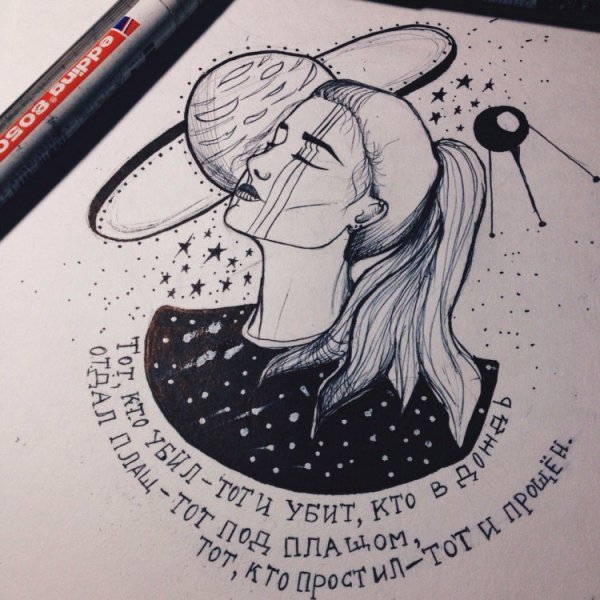 edding 8050
Тот, кто убил – тот и убит, кто в дождь
отдал плащ – тот под плащом,
тот, кто простил – тот и прощён.